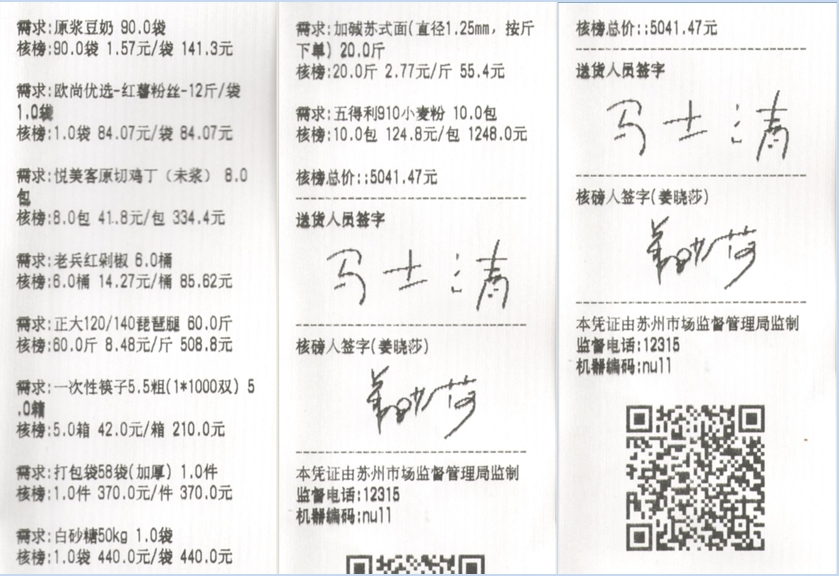 需求:原浆豆奶 90.0袋
核榜:90.0袋 1.57元/袋 141.3元
需求:欧尚优选-红薯粉丝-12斤/袋
1.0袋
核榜:1.0袋 84.07元/袋 84.07元
需求:悦美客原切鸡丁（未浆） 8.0
包
核榜:8.0包 41.8元/包 334.4元
需求:老兵红剁椒 6.0桶
核榜:6.0桶 14.27元/桶 85.62元
需求:正大120/140琵琶腿 60.0斤
核榜:60.0斤 8.48元/斤 508.8元
需求:一次性筷子5.5粗(1*1000双) 5
.0箱
核榜:5.0箱 42.0元/箱 210.0元
需求:打包袋58袋(加厚) 1.0件
核榜:1.0件 370.0元/件 370.0元
需求:白砂糖50kg 1.0袋
核榜:1.0袋 440.0元/袋 440.0元
需求:加碱苏式面(直径1.25mm，按斤
下单) 20.0斤
核榜:20.0斤 2.77元/斤 55.4元
需求:五得利910小麦粉 10.0包
核榜:10.0包 124.8元/包 1248.0元
核榜总价::5041.47元
送货人员签字
马士清
核磅人签字(姜晓莎)
姜晓莎
本凭证由苏州市场监督管理局监制
监督电话:12315
机器编码:null
核榜总价::5041.47元
送货人员签字
马士清
核磅人签字(姜晓莎)
姜晓莎
本凭证由苏州市场监督管理局监制
监督电话:12315
机器编码:null